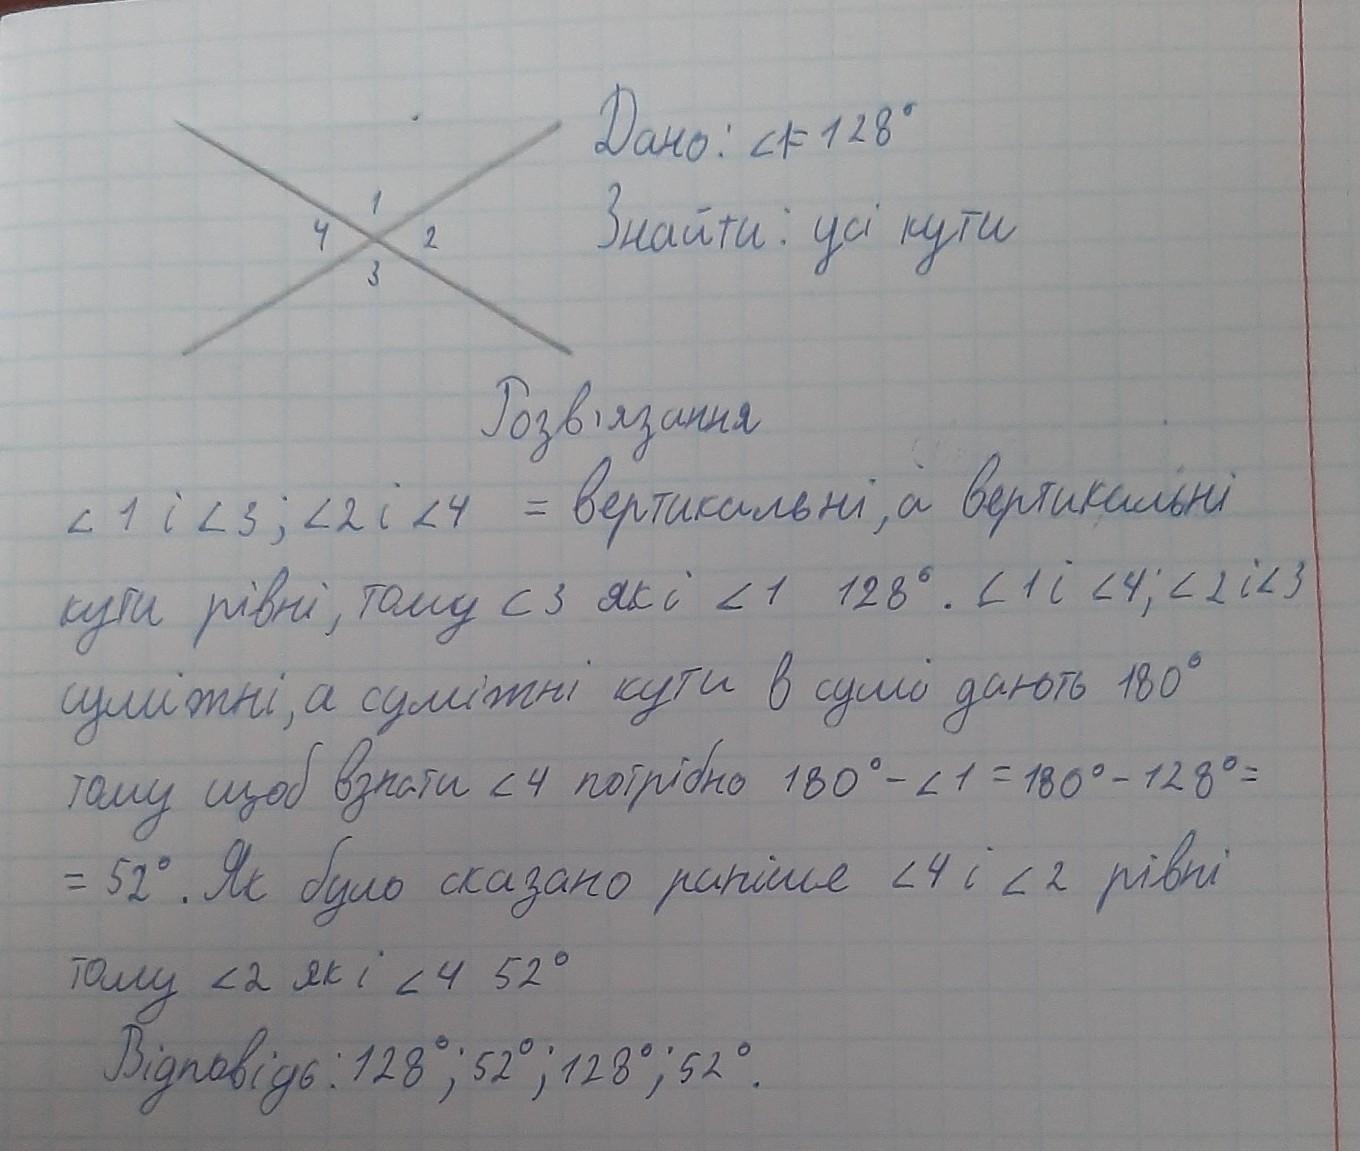 Дано: ∠1=128°
Знайти: усі кути
1
4 2
3
Розв'язання
∠1 і ∠3; ∠2 і ∠4 = вертикальні, а вертикальні
кути рівні, тому ∠3 як і ∠1 128°. ∠1 і ∠4; ∠2 і ∠3
суміжні, а суміжні кути в сумі дають 180°
тому щоб взнати ∠4 потрібно 180°-∠1=180°-128°=
=52°. Як було сказано раніше ∠4 і ∠2 рівні
тому ∠2 як і ∠4 52°
Відповідь: 128°; 52°; 128°; 52°.